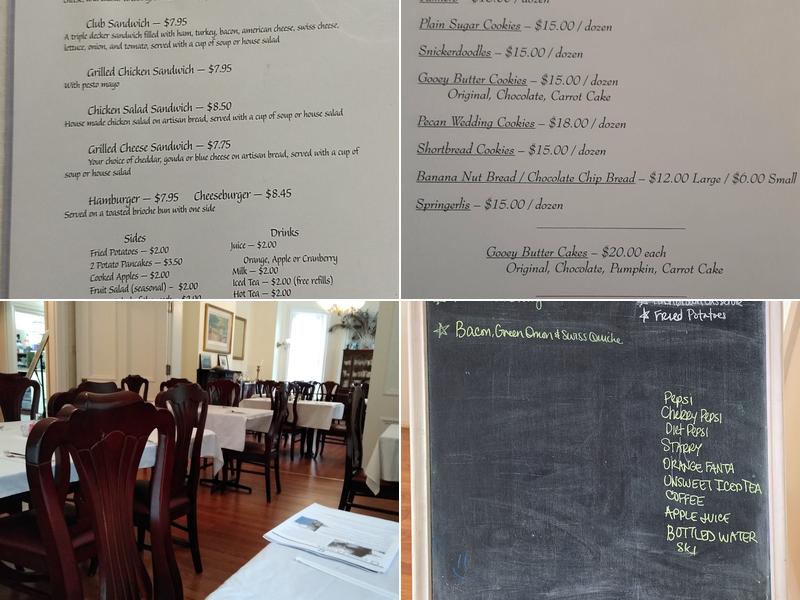 Club Sandwich — $7.95
A triple decker sandwich filled with ham, turkey, bacon, american cheese, swiss cheese,
lettuce, onion, and tomato, served with a cup of soup or house salad
Grilled Chicken Sandwich — $7.95
With pesto mayo
Chicken Salad Sandwich — $8.50
House made chicken salad on artisan bread, served with a cup of soup or house salad
Grilled Cheese Sandwich — $7.75
Your choice of cheddar, gouda or blue cheese on artisan bread, served with a cup of
soup or house salad
Hamburger — $7.95 Cheeseburger — $8.45
Served on a toasted brioche bun with one side
Sides
Fried Potatoes — $2.00
2 Potato Pancakes — $3.50
Cooked Apples — $2.00
Fruit Salad (seasonal) — $2.00
Drinks
Juice — $2.00
Orange, Apple or Cranberry
Milk — $2.00
Iced Tea — $2.00 (free refills)
Hot Tea — $2.00
Plain Sugar Cookies – $15.00 / dozen
Snickerdoodles – $15.00 / dozen
Gooey Butter Cookies – $15.00 / dozen
Original, Chocolate, Carrot Cake
Pecan Wedding Cookies – $18.00 / dozen
Shortbread Cookies – $15.00 / dozen
Banana Nut Bread / Chocolate Chip Bread – $12.00 Large / $6.00 Small
Springerlis – $15.00 / dozen
Gooey Butter Cakes – $20.00 each
Original, Chocolate, Pumpkin, Carrot Cake
Bacon, Green Onion & Swiss Quiche
Fried Potatoes
Pepsi
Cherry Pepsi
Diet Pepsi
STARRY
ORANGE FANTA
UNSWEET ICED TEA
COFFEE
APPLE JUICE
BOTTLED WATER
SKI